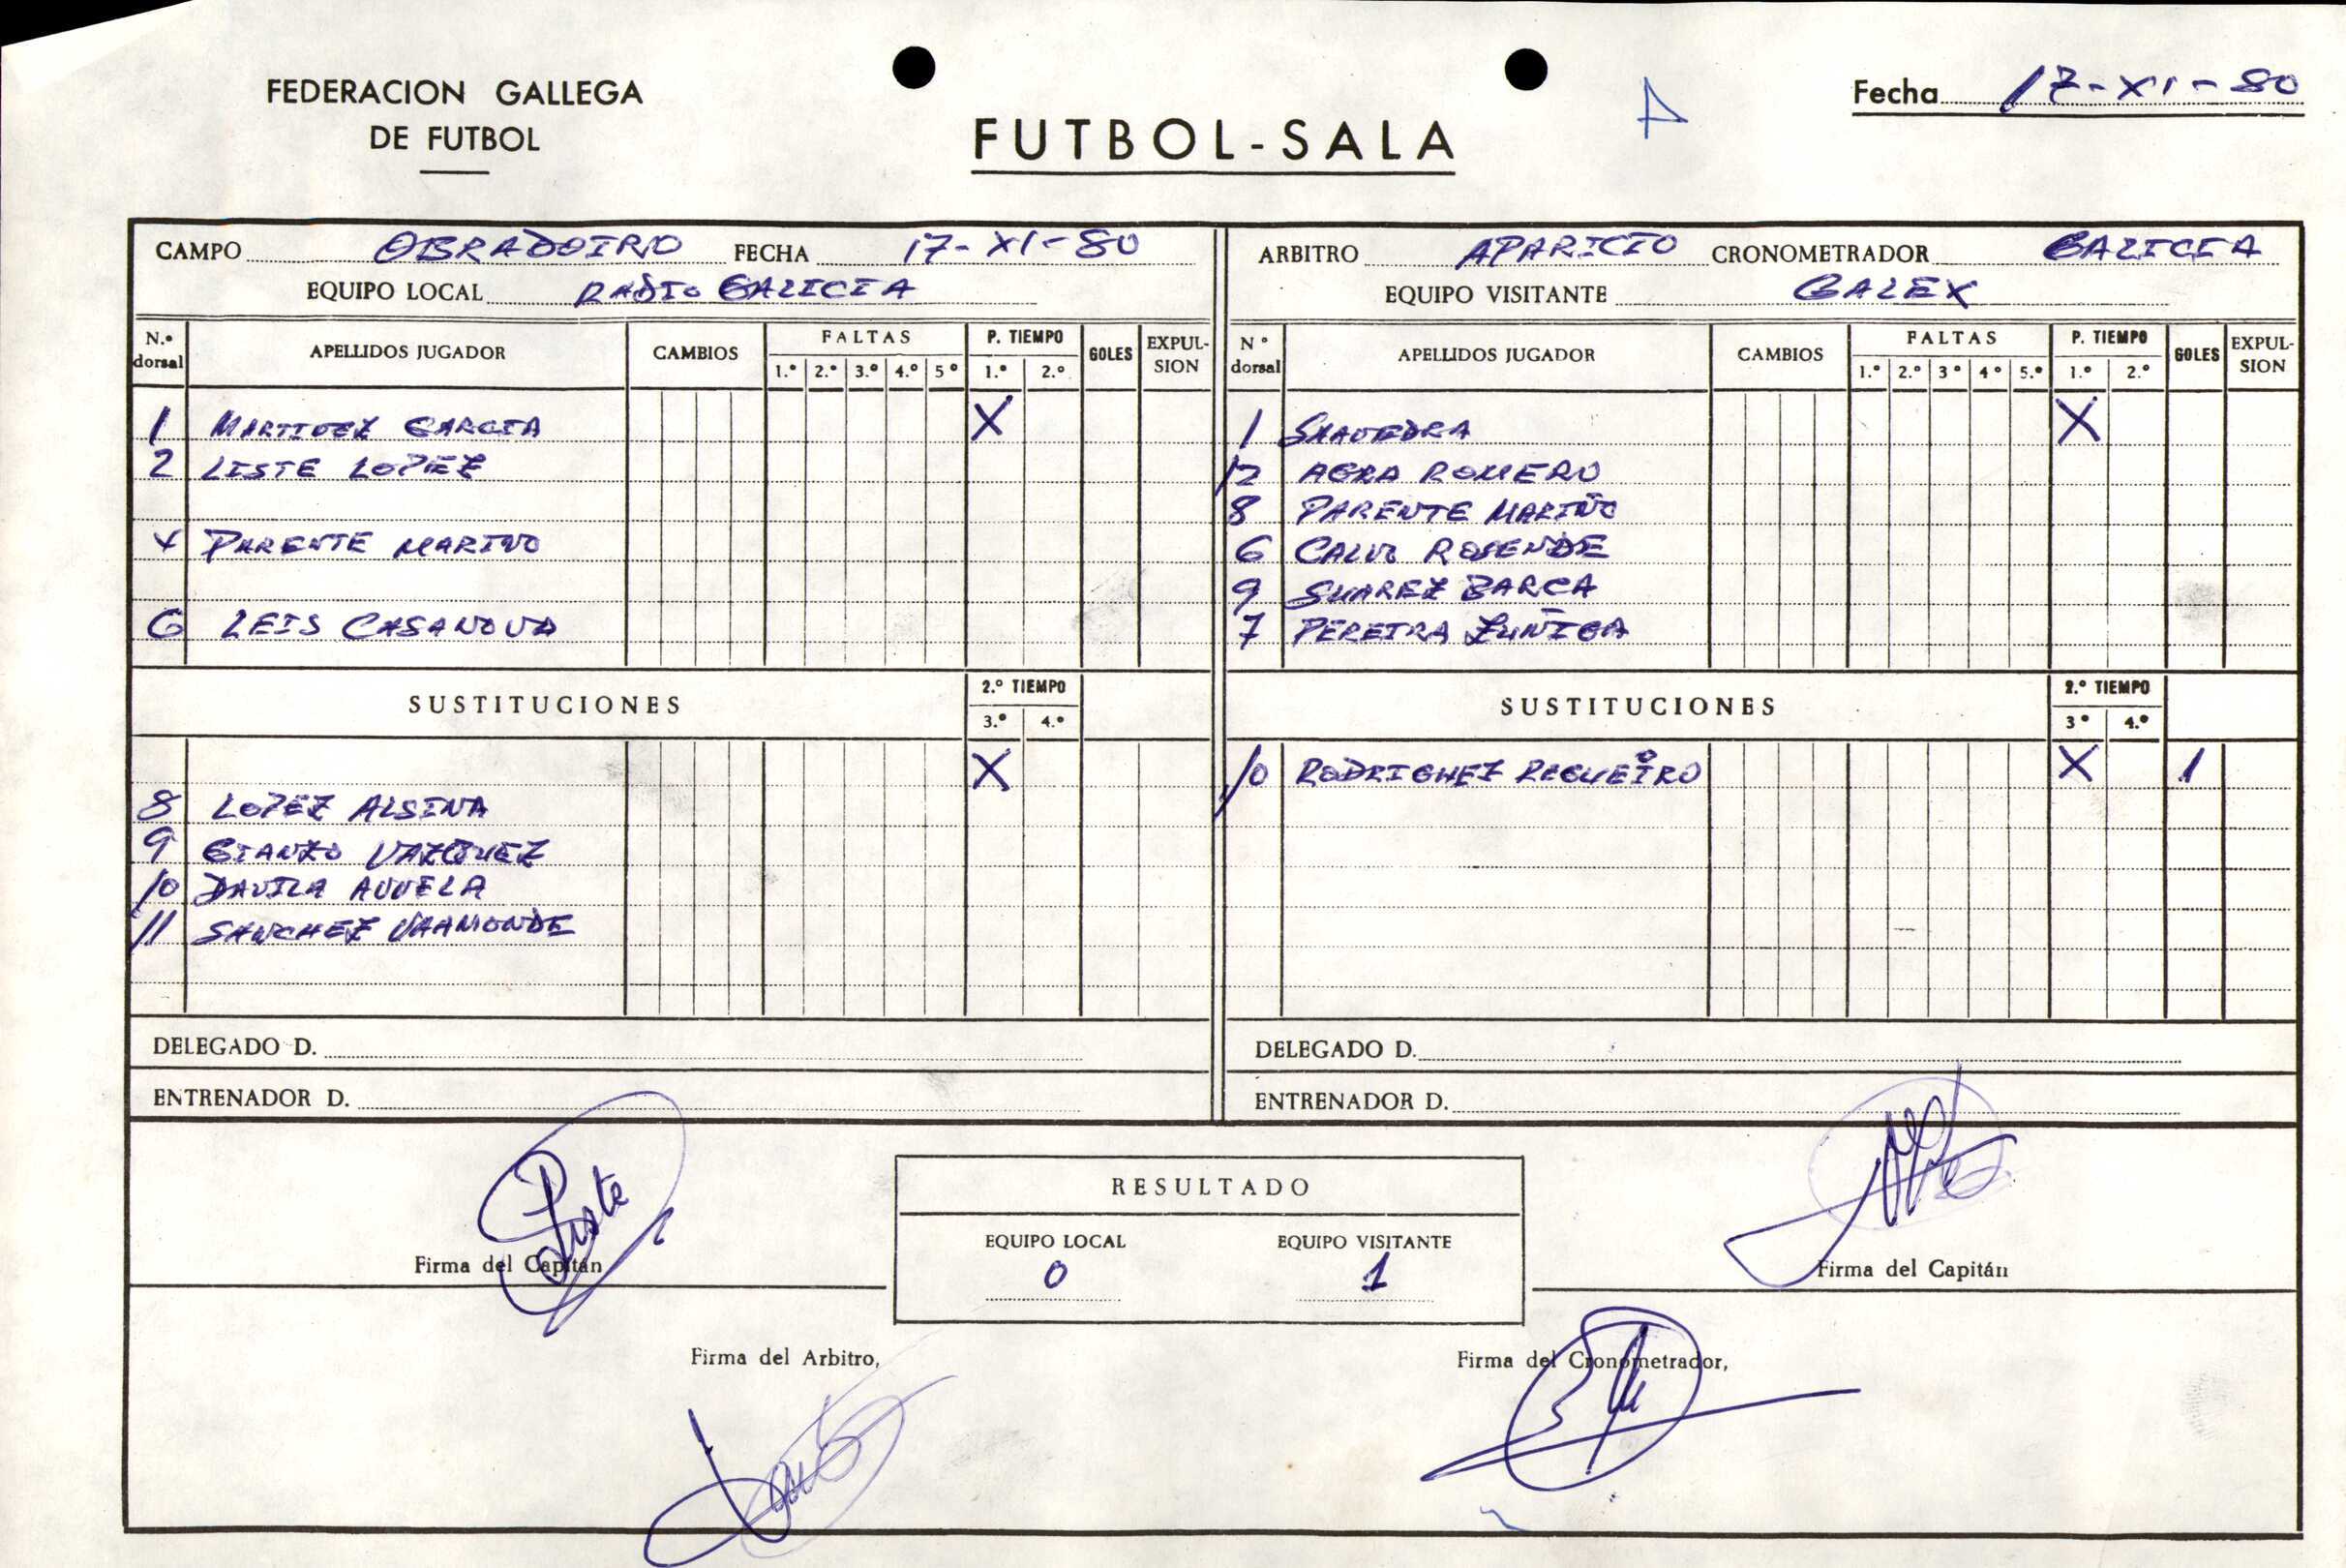 FEDERACION GALLEGA
DE FUTBOL
FUTBOL-SALA
A
Fecha 17-XI-80
CAMPO OBRADOIRO FECHA 17-XI-80
EQUIPO LOCAL RADIO GALICIA
N.º dorsal APELLIDOS JUGADOR CAMBIOS FALTAS 1.º 2.º 3.º 4.º 5º P. TIEMPO 1.º 2.º GOLES EXPULSION
1 MARTINEZ GARCIA X
2 LISTE LOPEZ
4 PARENTE MARIÑO
6 LEIS CASANOVA
SUSTITUCIONES 2.º TIEMPO 3.º 4.º
X
8 LOPEZ ALSINA
9 GIANZO VAZQUEZ
10 DAVILA
11 SANCHEZ VAAMONDE
DELEGADO D.
ENTRENADOR D.
ARBITRO APARICIO CRONOMETRADOR GALICIA
EQUIPO VISITANTE GALEX
Nº dorsal APELLIDOS JUGADOR CAMBIOS FALTAS 1.º 2.º 3º 4º 5.º P. TIEMPO 1.º 2.º GOLES EXPULSION
1 SAAVEDRA X
12 AGRA ROMERO
8 PARENTE MARIÑO
6 CALVO ROSENDE
9 SUAREZ BARCA
7 PEREIRA ZUÑIGA
SUSTITUCIONES 2.º TIEMPO 3º 4.º
10 RODRIGUEZ REGUEIRO X 1
DELEGADO D.
ENTRENADOR D.
RESULTADO
EQUIPO LOCAL EQUIPO VISITANTE
0 1
Liste
Firma del Capitán
Firma del Capitán
Firma del Arbitro,
Firma del Cronometrador,